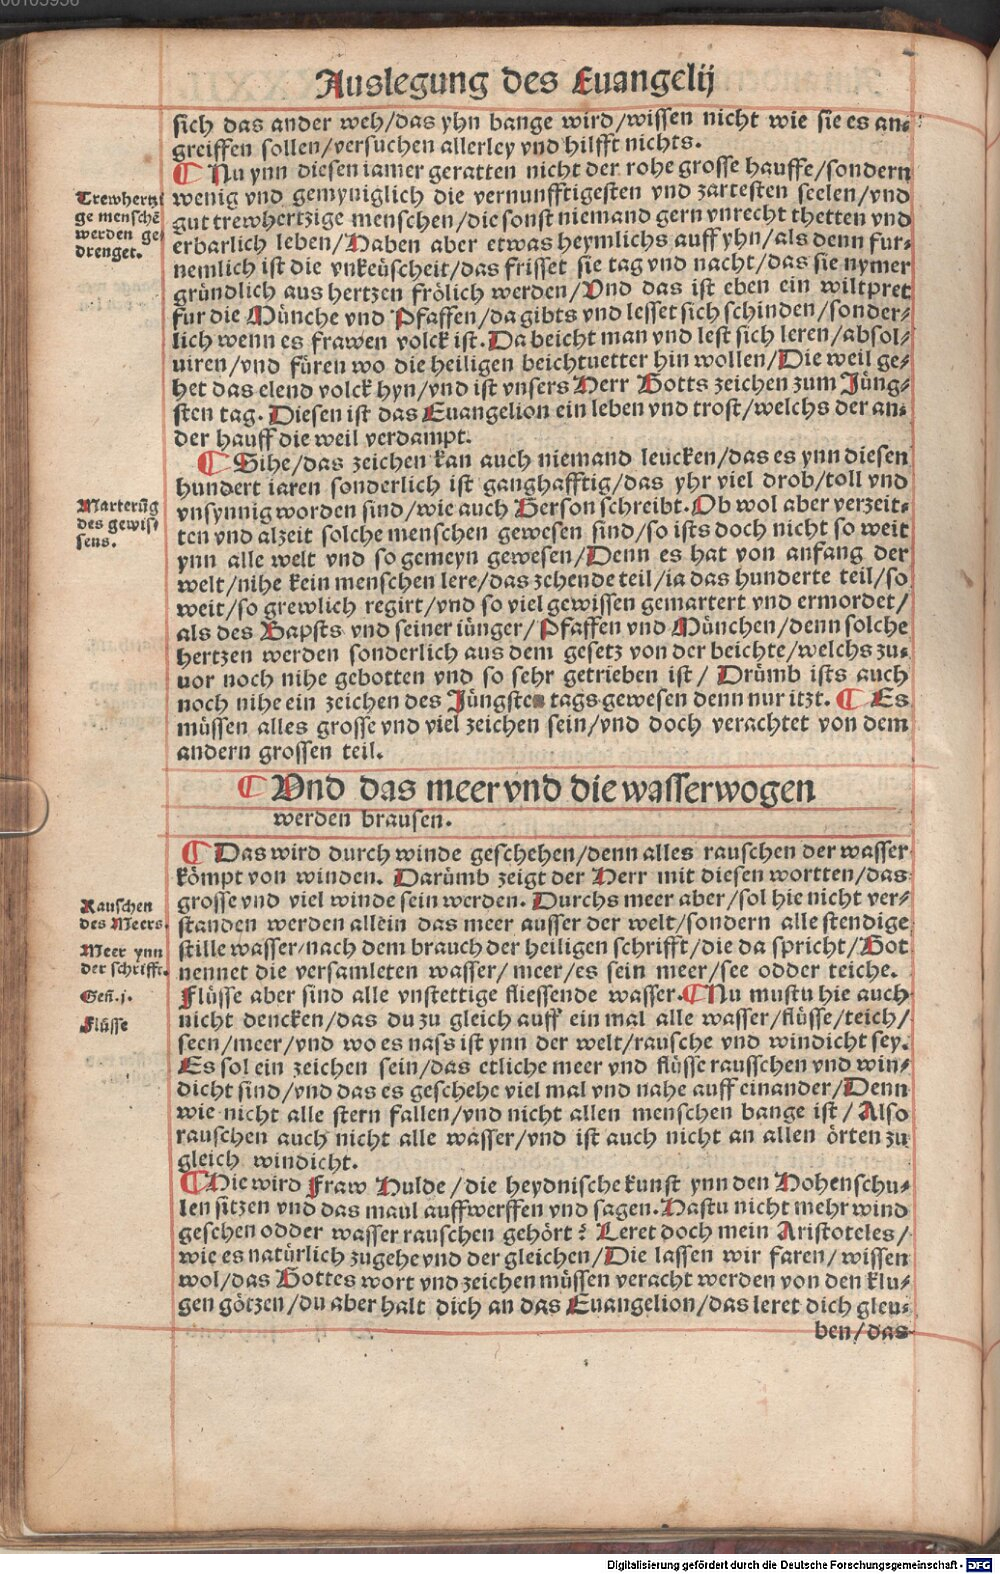 Auslegung des Euangelij
sich das ander weh/das yhn bange wird/wissen nicht wie sie es an⸗
greiffen sollen/versuchen allerley vnd hilfft nichts.
¶ Nu ynn diesen iamer geratten nicht der rohe grosse hauffe/sondern
Trewhertzi
ge menschẽ
werden ge
drenget.
wenig vnd gemyniglich die vernunfftigesten vnd zartesten seelen/vnd
gut trewhertzige menschen/die sonst niemand gern vnrecht thetten vnd
erbarlich leben/Haben aber etwas heymlichs auff yhn/als denn fur⸗
nemlich ist die vnkeüscheit/das frisset sie tag vnd nacht/das sie nymer
gründlich aus hertzen frölich werden/Vnd das ist eben ein wiltpret
fur die Münche vnd Pfaffen/da gibts vnd lesset sich schinden/sonder⸗
lich wenn es frawen volck ist. Da beicht man vnd lest sich leren/absol⸗
uiren/vnd füren wo die heiligen beichtuetter hin wollen/Die weil ge⸗
het das elend volck hyn/vnd ist vnsers Herr Gotts zeichen zum Jüng⸗
sten tag. Diesen ist das Euangelion ein leben vnd trost/welchs der an⸗
der hauff die weil verdampt.
¶ Sihe/das zeichen kan auch niemand leucken/das es ynn diesen
hundert iaren sonderlich ist ganghafftig/das yhr viel drob/toll vnd
Marterũg
des gewis⸗
sens.
vnsynnig worden sind/wie auch Gerson schreibt. Ob wol aber verzeit⸗
ten vnd alzeit solche menschen gewesen sind/so ists doch nicht so weit
ynn alle welt vnd so gemeyn gewesen/Denn es hat von anfang der
welt/nihe kein menschen lere/das zehende teil/ia das hunderte teil/so
weit/so grewlich regirt/vnd so viel gewissen gemartert vnd ermordet/
als des Bapsts vnd seiner iünger/Pfaffen vnd München/denn solche
hertzen werden sonderlich aus dem gesetz von der beichte/welchs zu⸗
uor noch nihe gebotten vnd so sehr getrieben ist/ Drümb ists auch
noch nihe ein zeichen des Jüngsten tags gewesen denn nur itzt. ¶ Es
müssen alles grosse vnd viel zeichen sein/vnd doch verachtet von dem
andern grossen teil.
¶ Vnd das meer vnd die wasserwogen
werden brausen.
¶ Das wird durch winde geschehen/denn alles rauschen der wasser
kömpt von winden. Darümb zeigt der Herr mit diesen wortten/das
Rauschen
des Meers.
Meer ynn
der schrifft.
Geñ.j.
Flüsse
grosse vnd viel winde sein werden. Durchs meer aber/sol hie nicht ver⸗
standen werden allein das meer ausser der welt/sondern alle stendige
stille wasser/nach dem brauch der heiligen schrifft/die da spricht/Got
nennet die versamleten wasser/meer/es sein meer/see odder teiche.
Flüsse aber sind alle vnstettige fliessende wasser. ¶ Nu mustu hie auch
nicht dencken/das du zu gleich auff ein mal alle wasser/flüsse/teich/
seen/meer/vnd wo es nass ist ynn der welt/rausche vnd windicht sey.
Es sol ein zeichen sein/das etliche meer vnd flüsse rausschen vnd win⸗
dicht sind/vnd das es geschehe viel mal vnd nahe auff einander/Denn
wie nicht alle stern fallen/vnd nicht allen menschen bange ist/ Also
rauschen auch nicht alle wasser/vnd ist auch nicht an allen örten zu
gleich windicht.
¶ Hie wird Fraw Hulde/die heydnische kunst ynn den Hohenschu⸗
len sitzen vnd das maul auffwerffen vnd sagen. Hastu nicht mehr wind
gesehen odder wasser rauschen gehört? Leret doch mein Aristoteles/
wie es natürlich zugehe vnd der gleichen/Die lassen wir faren/wissen
wol/das Gottes wort vnd zeichen müssen veracht werden von den klu⸗
gen götzen/du aber halt dich an das Euangelion/das leret dich gleu⸗
ben/das
Digitalisierung gefördert durch die Deutsche Forschungsgemeinschaft - DFG